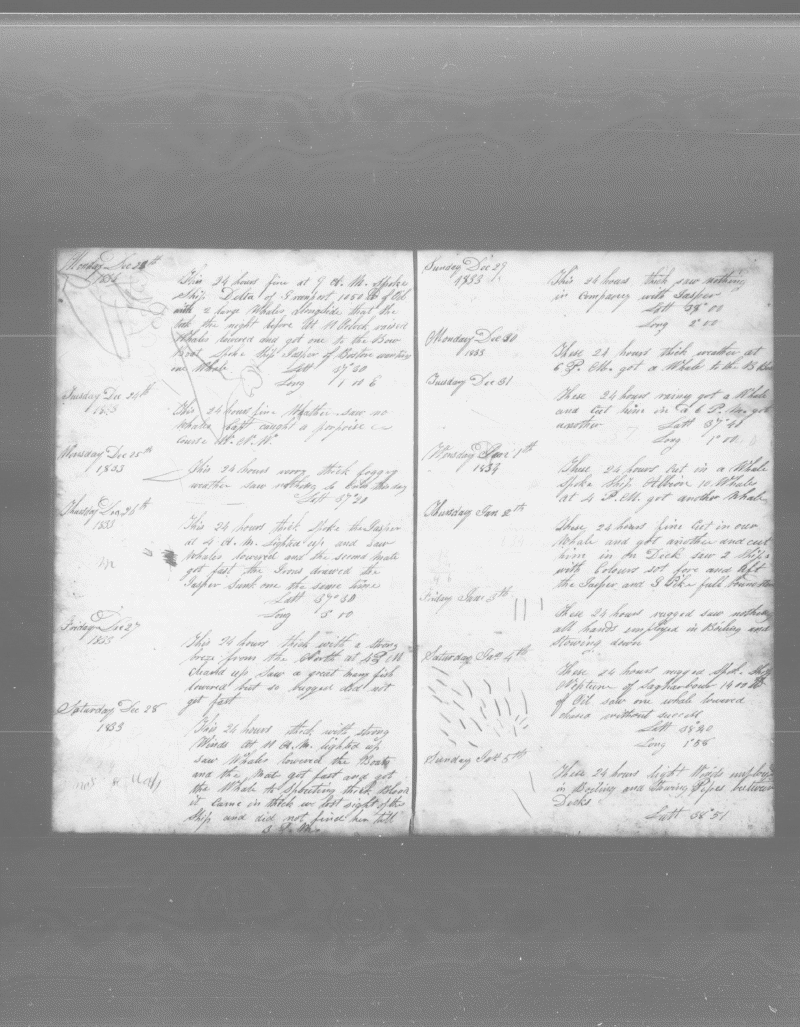 Monday Dec 23th
1833
This 24 hours fine at 9 A.M. Spoke
Ship Delta of Greenport 1050 bb of Oil
with 2 large Whales alongside that the
took the night before At 11 Oclock raised
Whales lowered and got one to the Bow
Boat Spoke Ship Jasper of Boston
one Whale Latt 37°30
Long 1°00 E
Tuesday Dec 24th
1833
This 24 hours fine Weather saw no
Whales Capt caught a porpoise
Course W. N. W.
Wensday Dec 25th
1833
This 24 hours very thick foggy
weather saw nothing so Ends this day
Latt 37°20
Thursday Dec 26th
1833
This 24 hours thick Spoke the Jasper
at 4 A.M. Lighted up and saw
Whales lowered and the second mate
got fast the Irons drawed the
Jasper Sunk one the same time
Latt 37°38
Long 3°10
Friday Dec 27
1833
This 24 hours thick with a strong
breze from the North at 4 P.M
cleard up Saw a great many fish
lowered but so rugged did not
get fast
Saturday Dec 28
1833
This 24 hours thick with strong
Winds At 11 A.M. lighted up
saw Whales lowered the Boats
and the Mate got fast and got
the Whale to Spouting thick Blood
it came in thick we lost sight of the
Ship and did not find her till
3 P. M.
Sunday Dec 29
1833
This 24 hours thick saw nothing
in Company with Jasper
Latt 38°00
Long 2°00
Monday Dec 30
1833
These 24 hours thick weather at
6 P.M. got a Whale to the
Tuesday Dec 31
These 24 hours rainy got a Whale
and Cut him in a 6 P.M. got
another Latt 37°41
Long 1°00
Wensday Jan 1th
1834
These 24 hours Cut in a Whale
Spoke Ship Albion 10 Whales
at 4 P.M. got another Whale
Thursday Jan 2th
These 24 hours fine Cut in our
Whale and got another and cut
him in On Deck saw 2 Ships
with Colours set fore and aft
the Jasper and full
Friday Jan 3th
These 24 hours rugged saw nothing
all hands employed in Boiling and
stowing down
Saturday Jan 4th
These 24 hours rugged Spok Ship
Neptune of Sagharbour 1400 bb
of Oil saw one whale lowered
chased without success
Latt 38°40
Long 1°58
Sunday Jan 5th
These 24 hours light Winds employed
in Boiling and Stowing Pipes between
Decks
Latt 38°51